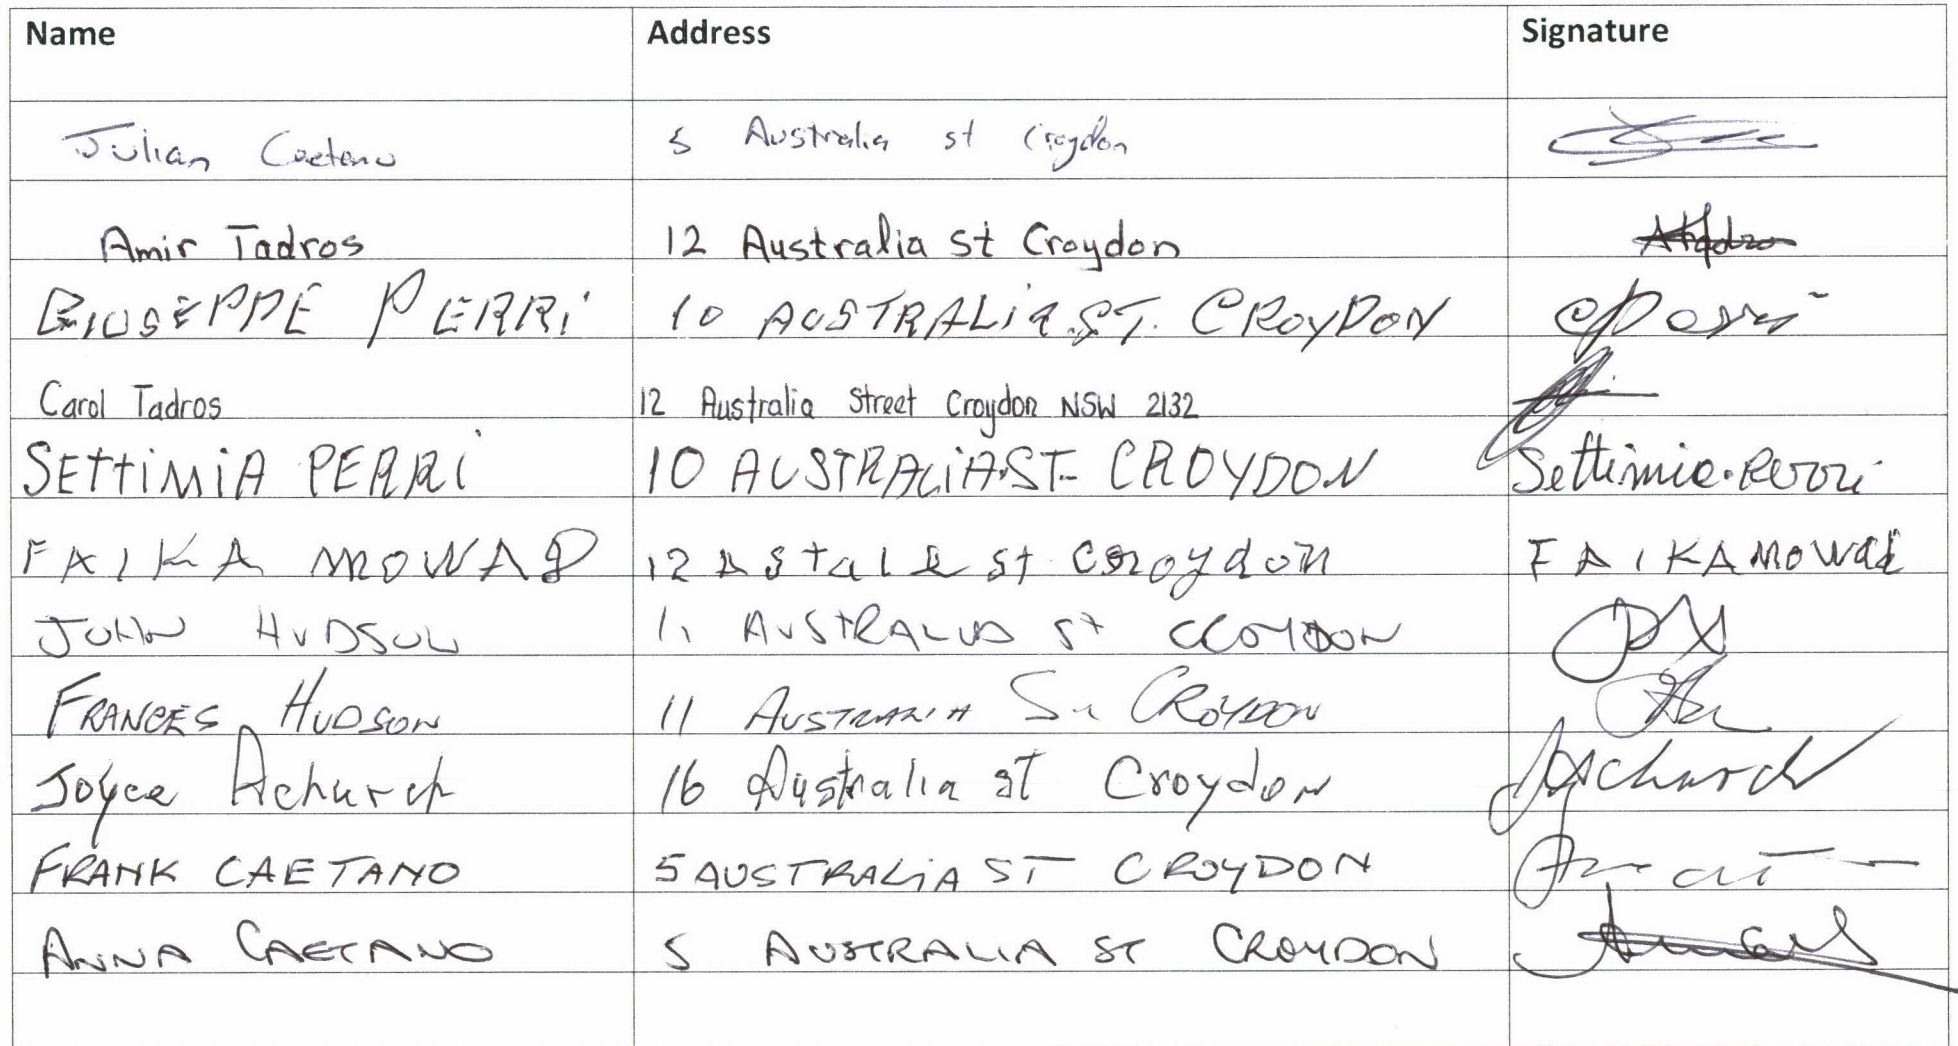 Name Address Signature
Julian Caetano 5 Australia st Croydon
Amir Tadros 12 Australia st Croydon ATadros
GIUSEPPE PERRi 10 AUSTRALiA ST. CROYDON GPerri
Carol Tadros 12 Australia Street Croydon NSW 2132
SETTiMiA PERRi 10 AUSTRALiA.ST- CROYDON Settimia.Perri
FAIKA MOWAD 12 Astale st Croydon FAIKAMOWad
JOHN HUDSON 11 AUSTRALIA St CROYDON
FRANCES HUDSON 11 AUSTRALIA St CROYDON
Joyce Achurch 16 Australia st Croydon JAchurch
FRANK CAETANO 5 AUSTRALiA ST CROYDON
ANNA CAETANO 5 AUSTRALIA ST CROYDON